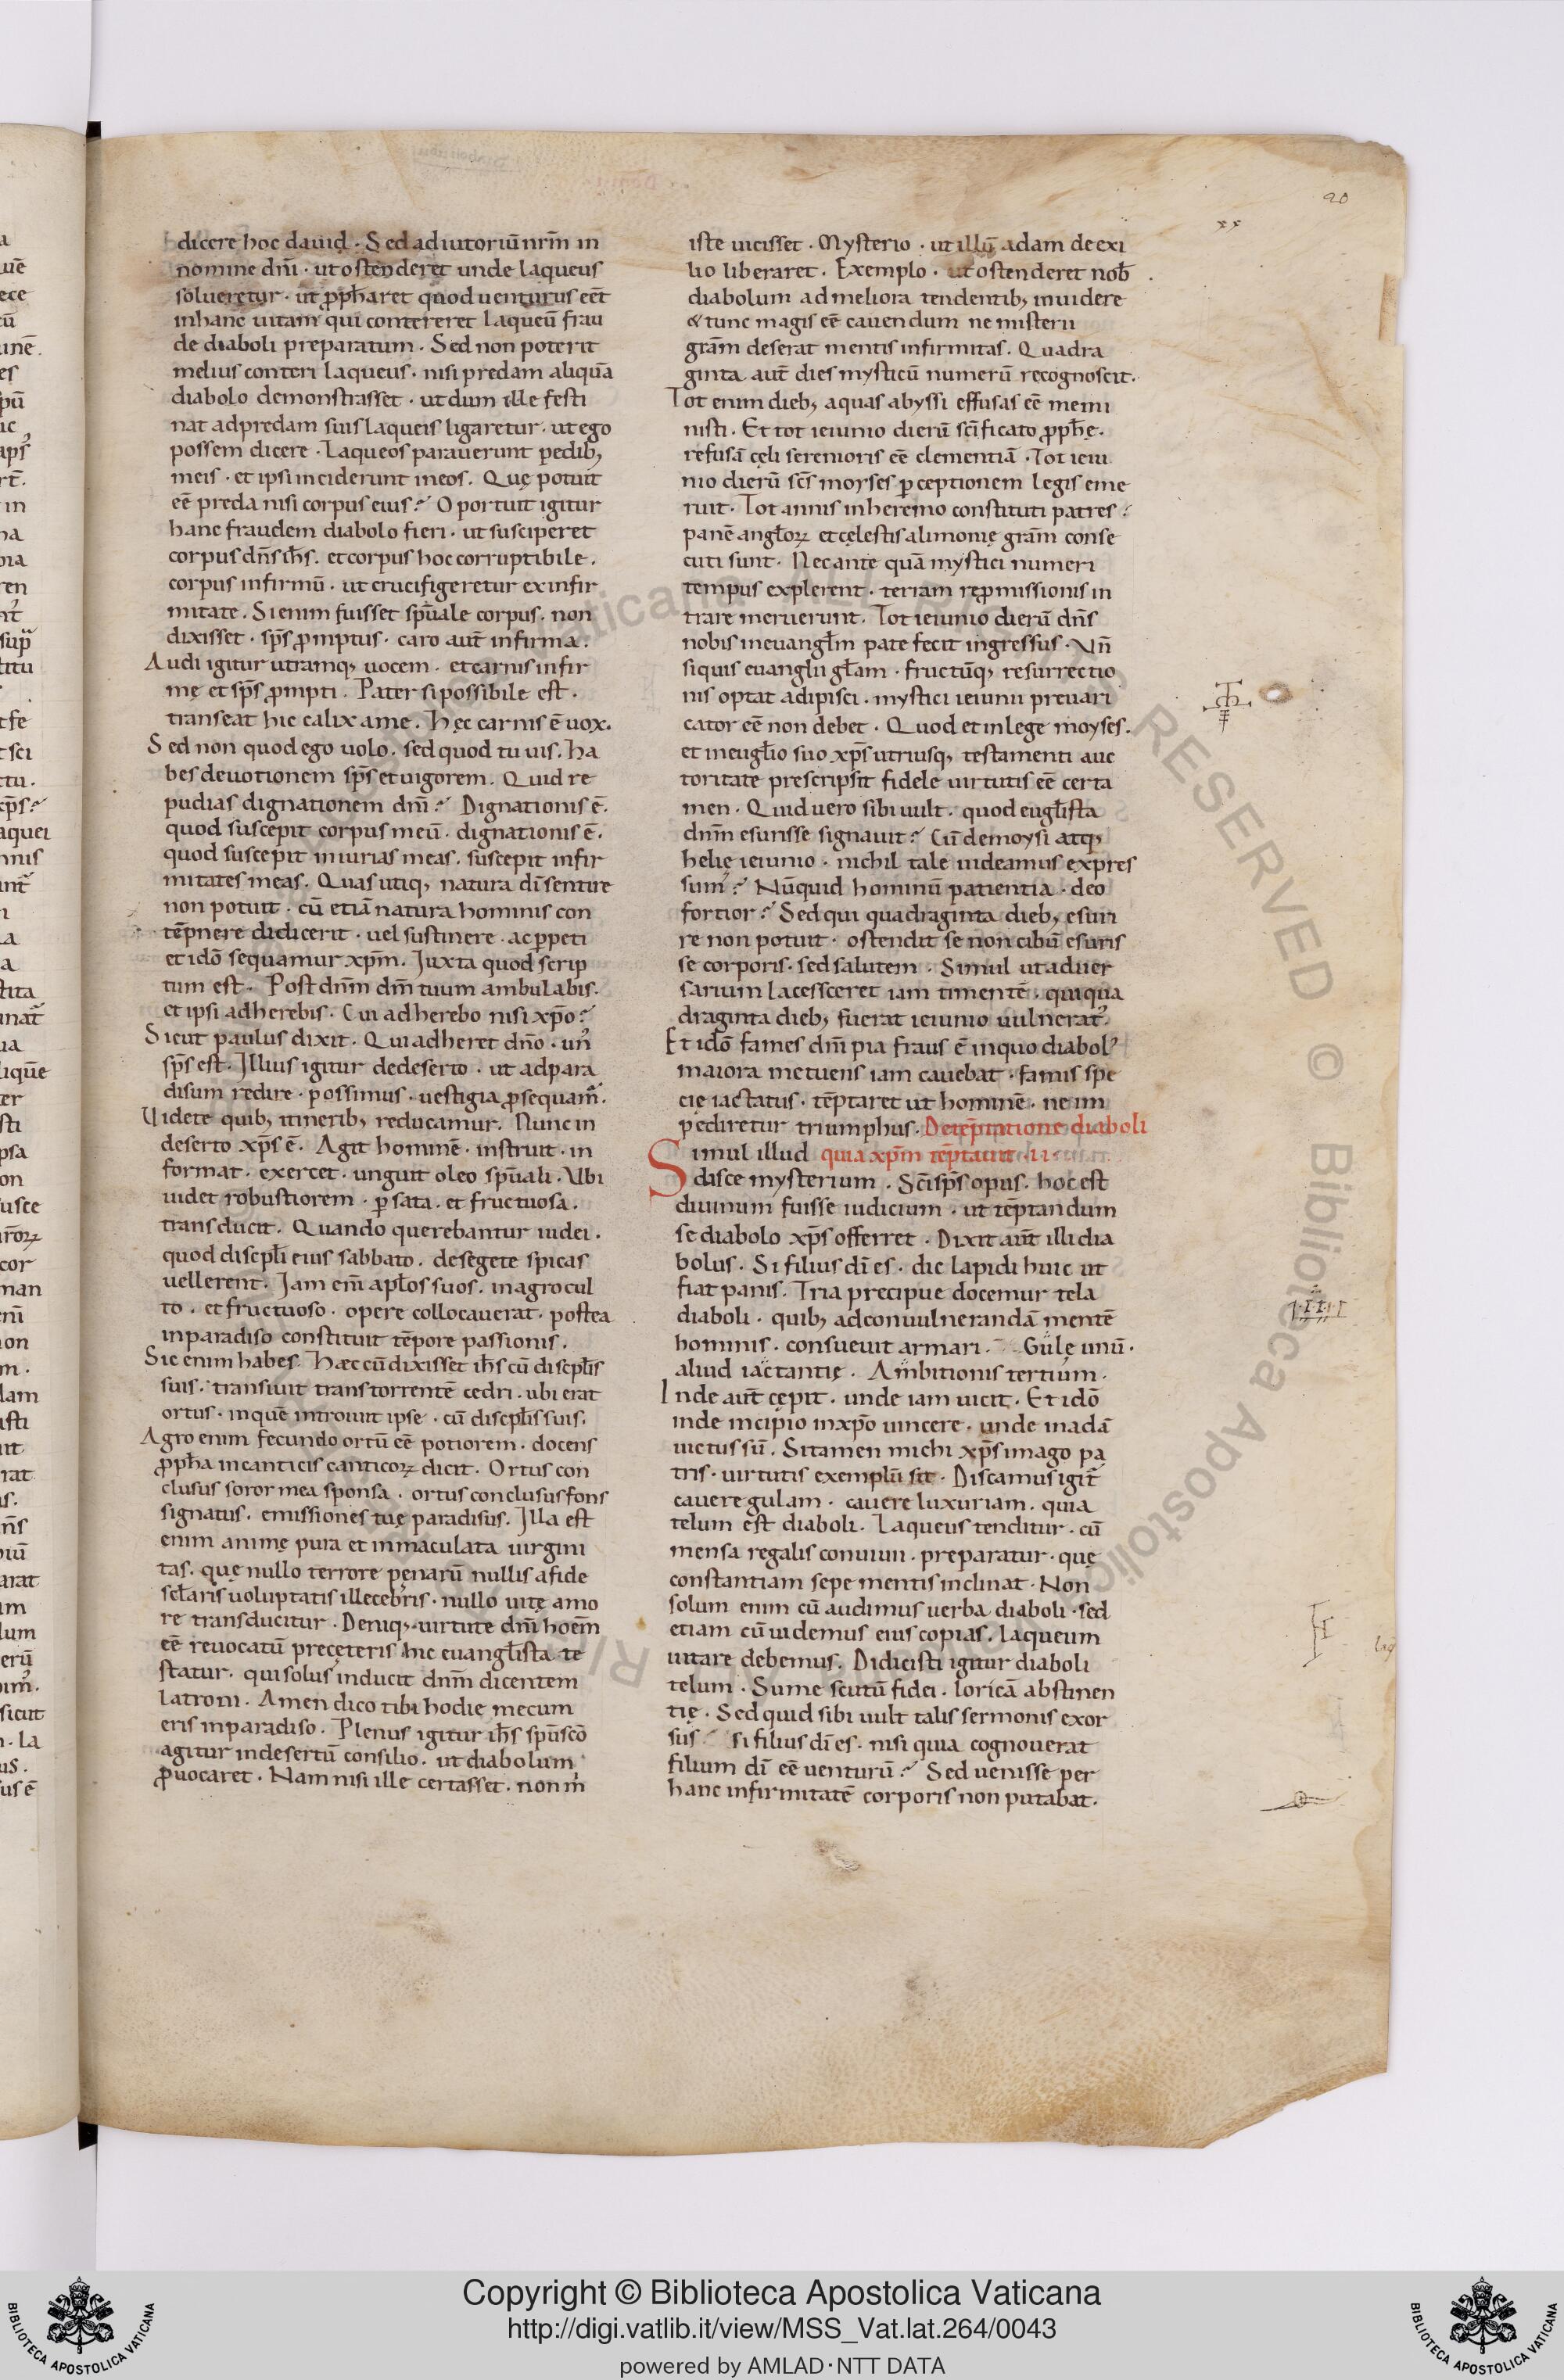 20
xx
dicere hoc dauid · Sed adiutoriū nrm̄ in
nomine dn̄i · ut ostenderet unde laqueus
solueretur · ut ꝓph̄aret quod uenturus eēt
in hanc uitam qui contereret laqueū frau
de diaboli preparatum · Sed non poterit
melius conteri laqueus · nisi predam aliquā
diabolo demonstrasset · ut dum ille festi
nat ad predam suis laqueis ligaretur · ut ego
possem dicere · Laqueos parauerunt pedib;
meis · et ipsi inciderunt in eos. Quę potuit
eē preda nisi corpus eius? Oportuit igitur
hanc fraudem diabolo fieri · ut susciperet
corpus dn̄s ih̄s. et corpus hoc corruptibile.
corpus infirmū · ut crucifigeretur ex infir
mitate. Si enim fuisset spūale corpus. non
dixisset · sp̄s ꝓmptus · caro aut̄ infirma.
Audi igitur utramq; uocem · et carnis infir
mę et sp̄s ꝓmpti. Pater si possibile est.
transeat hic calix a me. Hęc carnis ē uox.
Sed non quod ego uolo. sed quod tu uis. Ha
bes deuotionem sp̄s et uigorem. Quid re
pudias dignationem dn̄i? Dignationis ē.
quod suscepit corpus meū. dignationis ē.
quod suscepit iniurias meas. suscepit infir
mitates meas. Quas utiq; natura dī sentire
non potuit · cū etiā natura hominis con
tēpnere didicerit · uel sustinere · ac ꝑpeti
et idō sequamur xp̄m. Juxta quod scrip
tum est. Post dnm̄ dm̄ tuum ambulabis.
et ipsi adherebis. Cui adherebo nisi xp̄o?
Sicut paulus dixit. Qui adheret dn̄o · un᾽
sp̄s est. Illius igitur de deserto · ut ad para
disum redire · possimus · uestigia ꝓsequam᾽.
Uidete quib; itinerib; reducamur. Nunc in
deserto xp̄s ē. Agit hominē · instruit · in
format · exercet · unguit oleo spūali · Ubi
uidet robustiorem · ꝑ sata · et fructuosa.
transducit. Quando querebantur iudei.
quod discipl̄i eius sabbato. de segete spicas
uellerent. Jam em̄ apl̄os suos. in agro cul
to. et fructuoso · opere collocauerat · postea
in paradiso constituit tēpore passionis.
Sic enim habes. Hæc cū dixisset ih̄s cū discipl̄is
suis. transiuit trans torrentē cedri. ubi erat
ortus · in quē introiuit ipse. cū discipl̄is suis.
Agro enim fecundo ortū eē potiorem. docens
ꝓph̄a in canticis canticoꝝ dicit. Ortus con
clusus soror mea sponsa. ortus conclusus fons
signatus. emissiones tuę paradisus. Illa est
enim animę pura et inmaculata uirgini
tas. quę nullo terrore penarū nullis a fide
scl̄aris uoluptatis illecebris · nullo uitę amo
re transducitur. Deniq; uirtute dn̄i hoēm
eē reuocatū pręceteris hic euangl̄ista te
statur. qui solus inducit dnm̄ dicentem
latroni. Amen dico tibi hodie mecum
eris in paradiso. Plenus igitur ih̄s spūscō
agitur in desertū consilio. ut diabolum
ꝓuocaret. Nam nisi ille certasset. non m̄
iste uicisset · Mysterio · ut illū adam de exi
lio liberaret. Exemplo · ut ostenderet nob̄
diabolum ad meliora tendentib; inuidere
& tunc magis eē cauendum ne misterii
gram̄ deserat mentis infirmitas. Quadra
ginta aut̄ dies mysticū numerū recognoscit.
Tot enim dieb; aquas abyssi effusas eē memi
nisti. Et tot ieiunio dierū scīficato ꝓph̄ę.
refusā cęli serenioris eē clementiā · Tot ieiu
nio dierū scs̄ moyses ꝑceptionem legis eme
ruit. Tot annis in heremo constituti patres.
panē angl̄oꝝ et cęlestis alimonię gram̄ conse
cuti sunt. Nec ante quā mystici numeri
tempus explerent. terram repmissionis in
trare meruerunt. Tot ieiunio dierū dn̄s
nobis in euangl̄m patefecit ingressus. Un̄
siquis euanglii gl̄am. fructūq; resurrectio
nis optat adipisci. mystici ieiunii preuari
cator eē non debet. Quod et in lege moyses.
et in eugl̄io suo xp̄s utriusq; testamenti auc
toritate prescripsit fidele uirtutis eē certa
men. Quid uero sibi uult. quod eugl̄ista
dnm̄ esurisse signauit? Cū de moysi atq;
helię ieiunio. nichil tale uideamus expres
sum? Nūquid hominū patientia · deo
fortior? Sed qui quadraginta dieb; esuri
re non potuit · ostendit se non cibū esuris
se corporis · sed salutem. Simul ut aduer
sarium lacessceret iam timentē. qui qua
draginta dieb; fuerat ieiunio uulnerat᾽.
Et idō fames dn̄i pia fraus ē in quo diabol᾽
maiora metuens iam cauebat. famis spe
cię iactatus. tēptaret ut hominē. ne im
pediretur triumphus. De tēptatione diaboli
Simul illud quia xp̄m tēptauit · 11 ·
disce mysterium. Scī sp̄s opus. hoc est
diuinum fuisse iudicium. ut tēptandum
se diabolo xp̄s offerret. Dixit aut̄ illi dia
bolus. Si filius dī es. dic lapidi huic ut
fiat panis. Tria precipue docemur tela
diaboli. quib; ad conuulnerandā mentē
hominis. consueuit armari. Gulę unū.
aliud iactantię. Ambitionis tertium.
Inde aut̄ cępit. unde iam uicit. Et idō
inde incipio in xp̄o uincere. unde in adā
uictus sū. Si tamen michi xp̄s imago pa
tris. uirtutis exemplū sit. Discamus igit̄
cauere gulam. cauere luxuriam. quia
telum est diaboli. Laqueus tenditur. cū
mensa regalis conuiuii. preparatur. quę
constantiam sepe mentis inclinat. Non
solum enim cū audimus uerba diaboli. sed
etiam cū uidemus eius copias. laqueum
uitare debemus. Didicisti igitur diaboli
telum. Sume scutū fidei. loricā abstinen
tię. Sed quid sibi uult talis sermonis exor
sus si filius dī es. nisi quia cognouerat
filium dī eē uenturū? Sed uenisse per
hanc infirmitatē corporis non putabat.
Copyright © Biblioteca Apostolica Vaticana
http://digi.vatlib.it/view/MSS_Vat.lat.264/0043
powered by AMLAD·NTT DATA
BIBLIOTECA APOSTOLICA VATICANA
BIBLIOTECA APOSTOLICA VATICANA